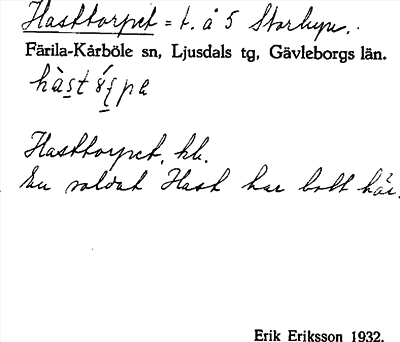 Hasttorpet = t. å 5 Storhyn.
Färila-Kårböle sn, Ljusdals tg, Gävleborgs län.
Hasttorpet, hb.
En soldat Hast har bott här.
Erik Eriksson 1932.